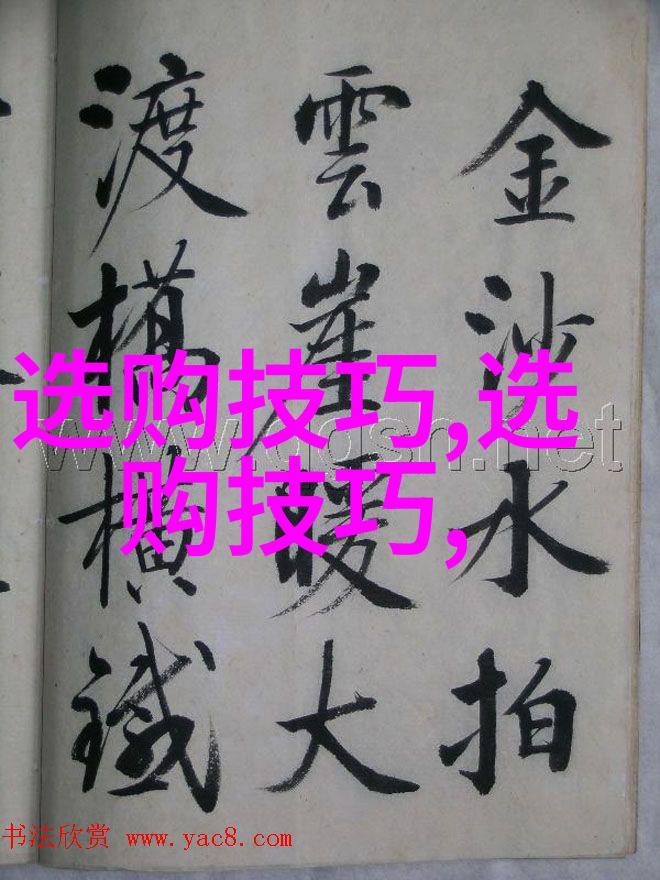 金沙水拍
雲崖暖大
渡橋橫鐵
选购技巧,选
购技巧,
www.qqsh.net
书法欣赏 www.yac8.com